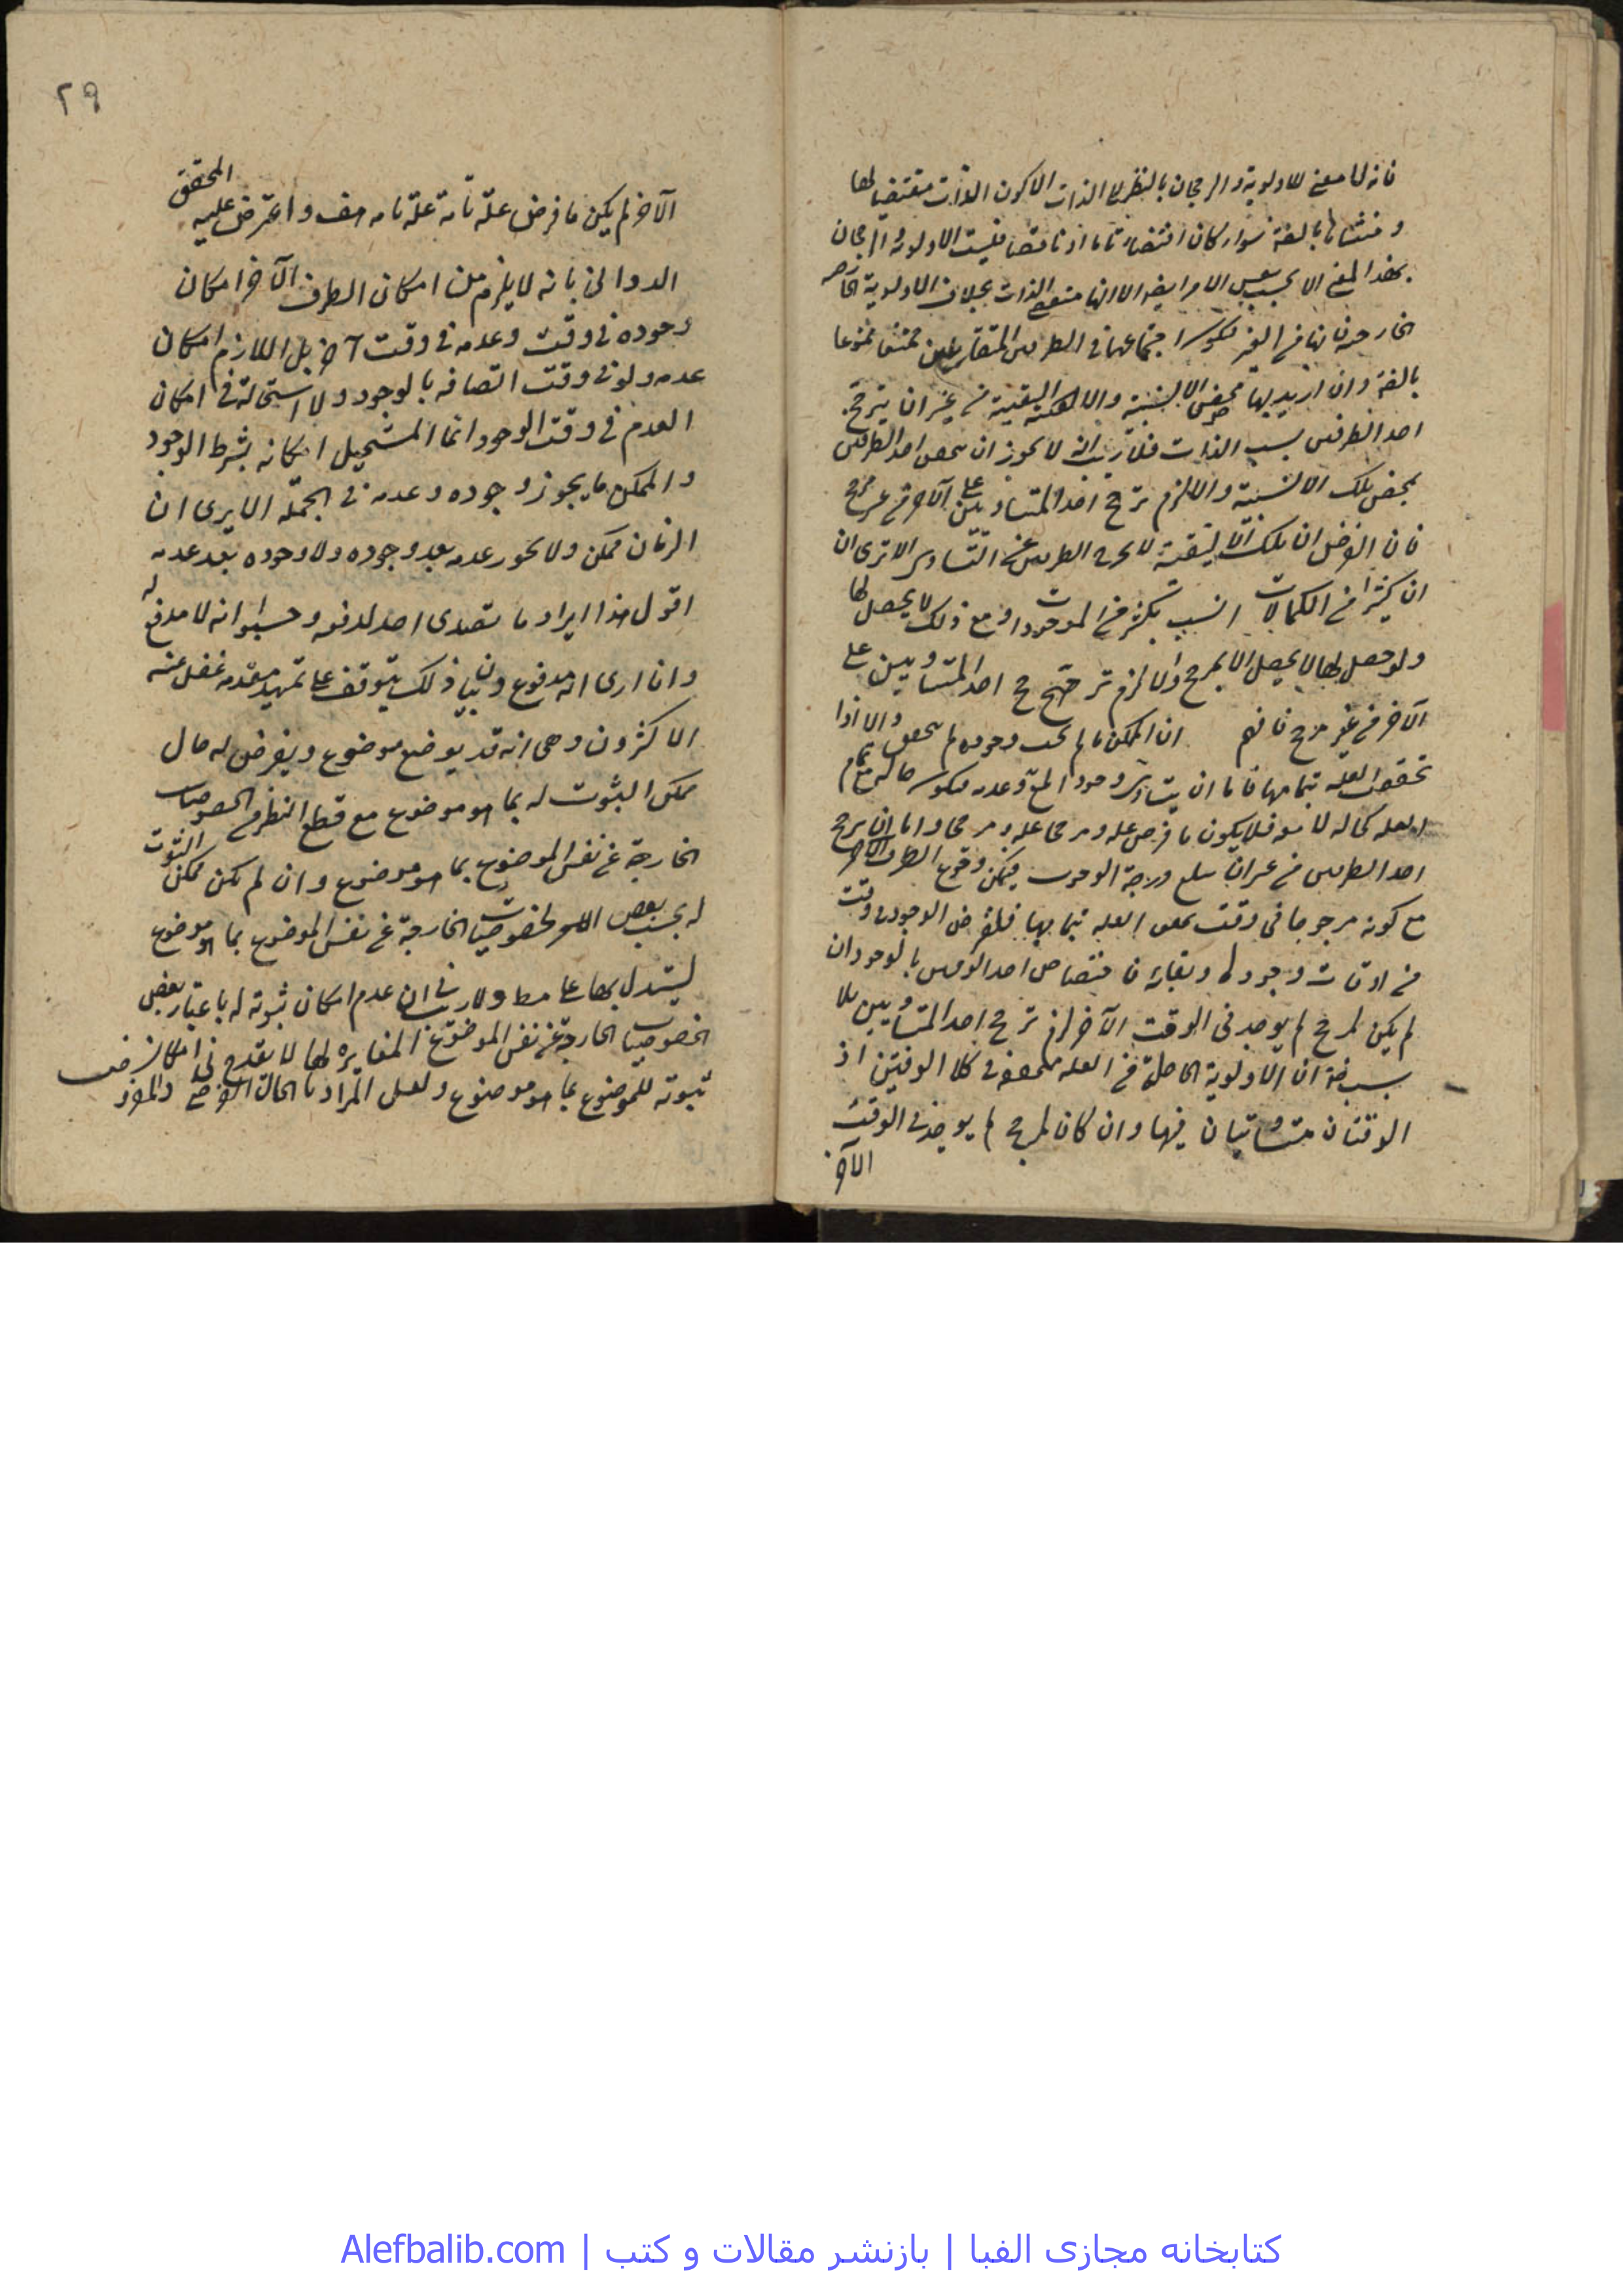 فانه لا معنى للاولوية والرجحان بالنظر الى الذات الا كون الذات مقتضيا لها
ومنشأ لها بالغة سواء كان اقتضاء تاما او ناقصا فليست الاولوية والرجحان
بهذا المعنى الا بحسب نفس الامر ايضا الا انها الذات بخلاف الاولوية
الخارجية فانها من الغير اجتماعها في الطرفين المتقابلين ممتنعا
وان اريد بها محض الانسبية والاليقية من غير ان يترجح
احد الطرفين بسبب الذات فلا ريب انه لا يجوز ان يحصل احد الطرفين
بمحض تلك الانسبية والا لزم ترجح احد المتساويين على الآخر من غير مرجح
فان الفرض ان تلك الاليقية لا يخرج الطرفين عن التساوي الا ترى ان
ان كثيرا من الكمالات انسب بكثير من الموجودات ومع ذلك لا يحصل لها
ولو حصل لها لا يحصل الا بمرجح والا لزم ترجح احد المتساويين على
الآخر من غير مرجح فافهم ان الممكن ما لم يجب وجوده لم يتحقق والا اذا
تحققت العلة بتمامها فاما ان يتساوى وجود المع وعدمه فيكون حاله مع تمام
العلة كحاله لا معه فلا يكون ما فرض علة ومرجحا علة ومرجحا واما ان يرجح
احد الطرفين من غير ان يبلغ درجة الوجوب فيمكن وقوع الطرف الآخر
مع كونه مرجوحا في وقت تحقق العلة بتمامها فلنفرض الوجود في وقت
من اوقات وجودها وبقائه فاختصاص احد الوقتين بالوجود ان
لم يكن لمرجح لم يوجد في الوقت الآخر لزم ترجح احد المتساويين بلا
سبب ضرورة ان الاولوية الحاصلة من العلة متحققة في كلا الوقتين اذ
الوقتان متساويان فيها وان كان لمرجح لم يوجد في الوقت
الآخر
٢٩
الآخر لم يكن ما فرض علة تامة علة تامه هف واعترض عليه المحقق
الدواني بانه لا يلزم من امكان الطرف الآخر امكان
وجوده في وقت وعدمه في وقت آخر بل اللازم امكان
عدمه ولو في وقت اتصافه بالوجود ولا استحالة في امكان
العدم في وقت الوجود انما المستحيل امكانه بشرط الوجود
والممكن ما يجوز وجوده وعدمه في الجملة الا يرى ان
الزمان ممكن ولا يجوز عدمه بعد وجوده ولا وجوده بعد عدمه
اقول هذا ايراد ما تصدى احد لدفعه وحسبوا انه لا مدفع له
وانا ارى انه مدفوع وبيان ذلك يتوقف على تمهيد مقدمه غفل عنه
الاكثرون وهي انه قد يوضع موضوع ويفرض له حال
ممكن الثبوت له بما هو موضوع مع قطع النظر عن الخصوصيات
الخارجة عن نفس الموضوع بما هو موضوع وان لم يكن ممكن الثبوت
له بحسب بعض الخصوصيات الخارجة عن نفس الموضوع بما هو موضوع
ليستدل بها على مط ولا ريب في ان عدم امكان ثبوته له باعتبار بعض
الخصوصيات الخارجة عن نفس الموضوع المغايره لها لا يقدح في امكان فرض
ثبوته للموضوع بما هو موضوع ولعل المراد بالحال
كتابخانه مجازی الفبا | بازنشر مقالات و کتب | Alefbalib.com